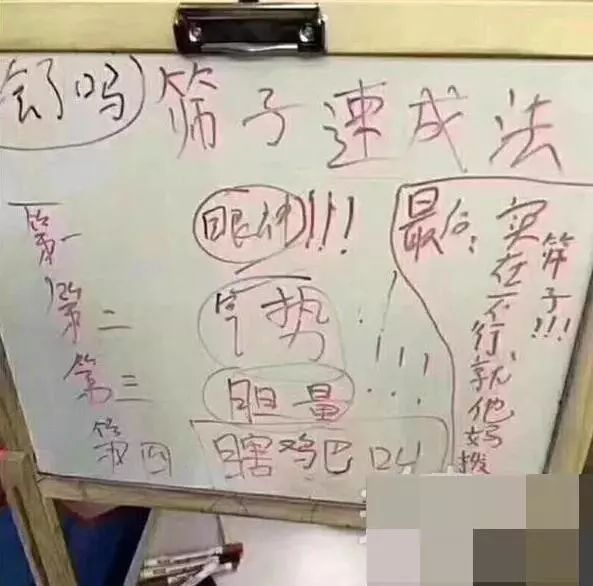 会了吗 筛子速成法
第一 眼神!!!
第二 气势!!!
第三 胆量!!!
第四 瞎鸡巴叫
最后：实在不行，就他妈拨
筛子!!!